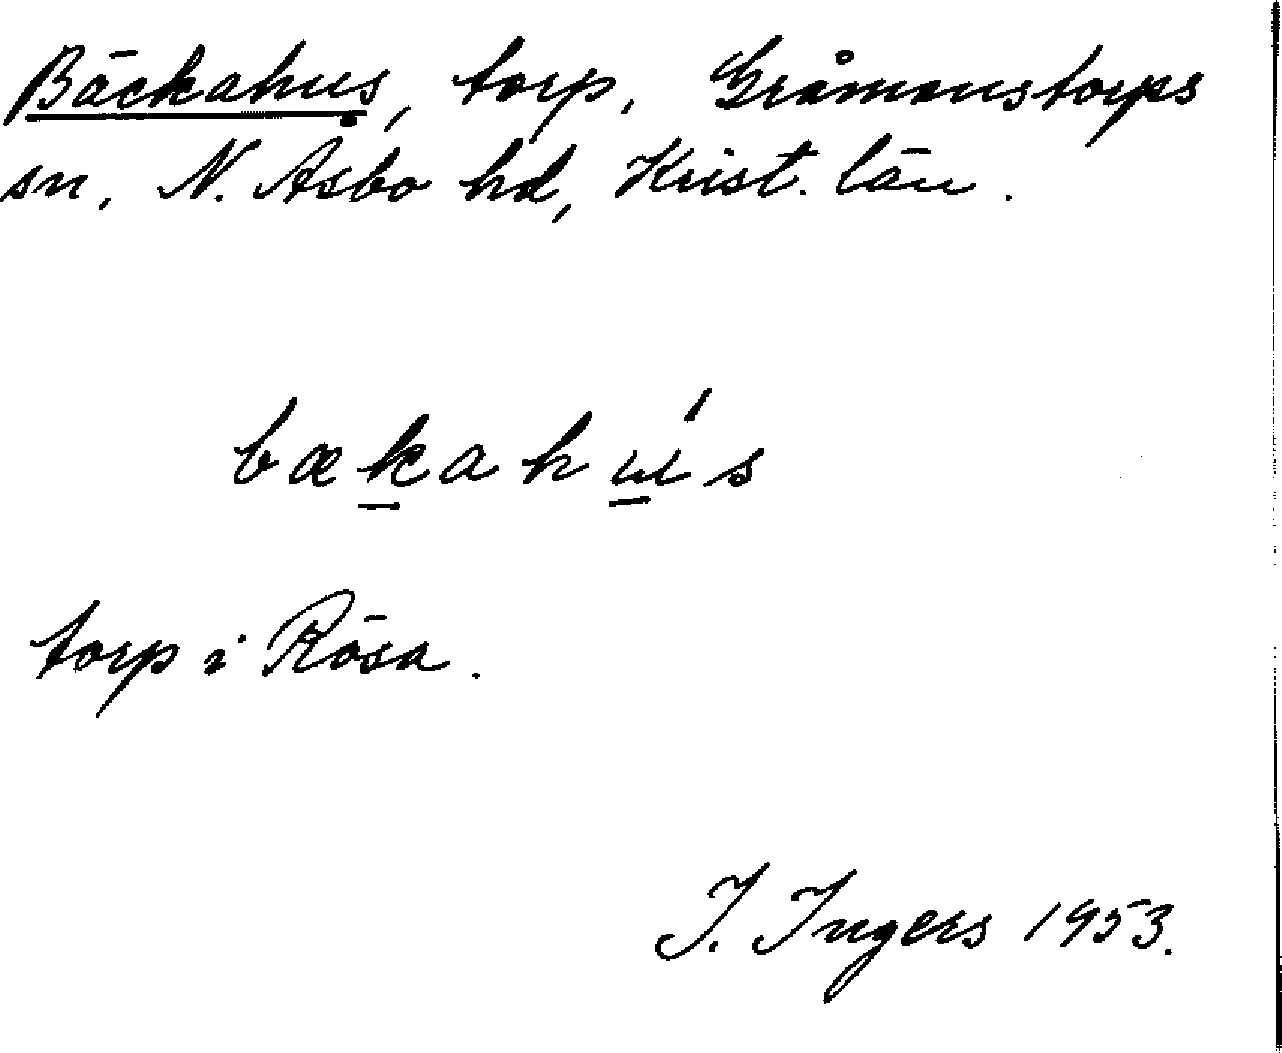 Bäckahus, torp, Gråmanstorps
sn, N. Åsbo hd, Krist. län.
bækahú̱s
torp i Rösa.
I. Ingers 1953.